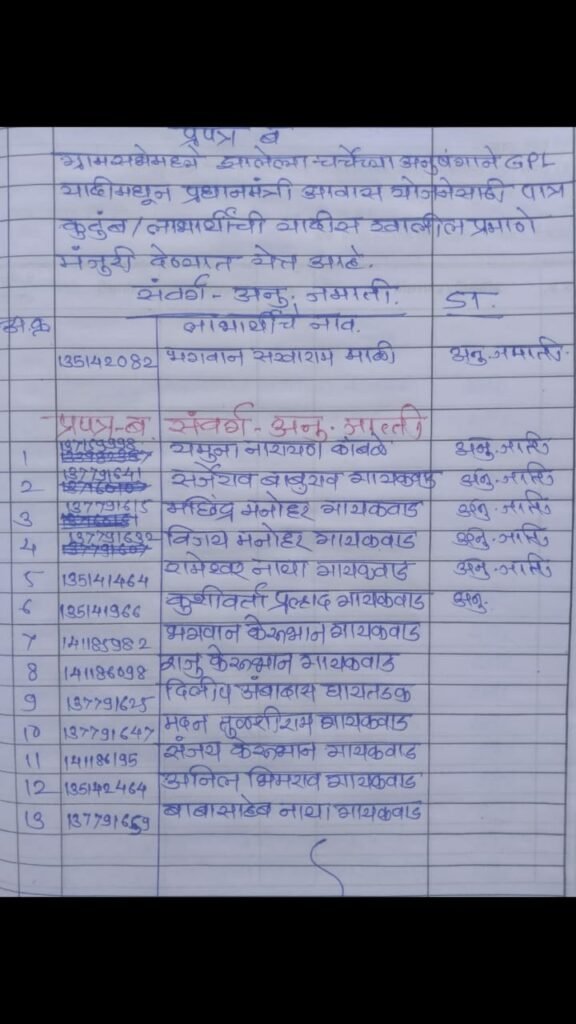 प्रपत्र ब
ग्रामसभेमध्ये झालेल्या चर्चेच्या अनुषंगाने GPL
यादीमधून प्रधानमंत्री आवास योजनेसाठी पात्र
कुटुंब/लाभार्थीची यादीस खालील प्रमाणे
मंजुरी देण्यात येत आहे.
संवर्ग - अनु. जमाती. ST.
अ.क्र लाभार्थीचे नाव.
135142082 भगवान सखाराम माळी अनु.जमाती.
प्रपत्र-ब संवर्ग - अनु. जाती
1 यमुना नारायण कांबळे अनु.जाति
2 137791641 सर्जेराव बाबुराव गायकवाड अनु.जाति
3 137791615 मछिंद्र मनोहर गायकवाड अनु.जाति
4 विजय मनोहर गायकवाड अनु.जाति
5 135141464 रामेश्वर नाथा गायकवाड अनु.जाति
6 135141966 कुशीवर्ता प्रल्हाद गायकवाड अनु.
7 141185982 भगवान केरुभान गायकवाड
8 141186098 राजु केरुभान गायकवाड
9 137791625 दिलीप अंबादास घायतडक
10 137791647 मदन तुळशीराम गायकवाड
11 141186195 संजय केरुभान गायकवाड
12 135142464 अनिल भिमराव गायकवाड
13 137791659 बाबासाहेब नाथा गायकवाड